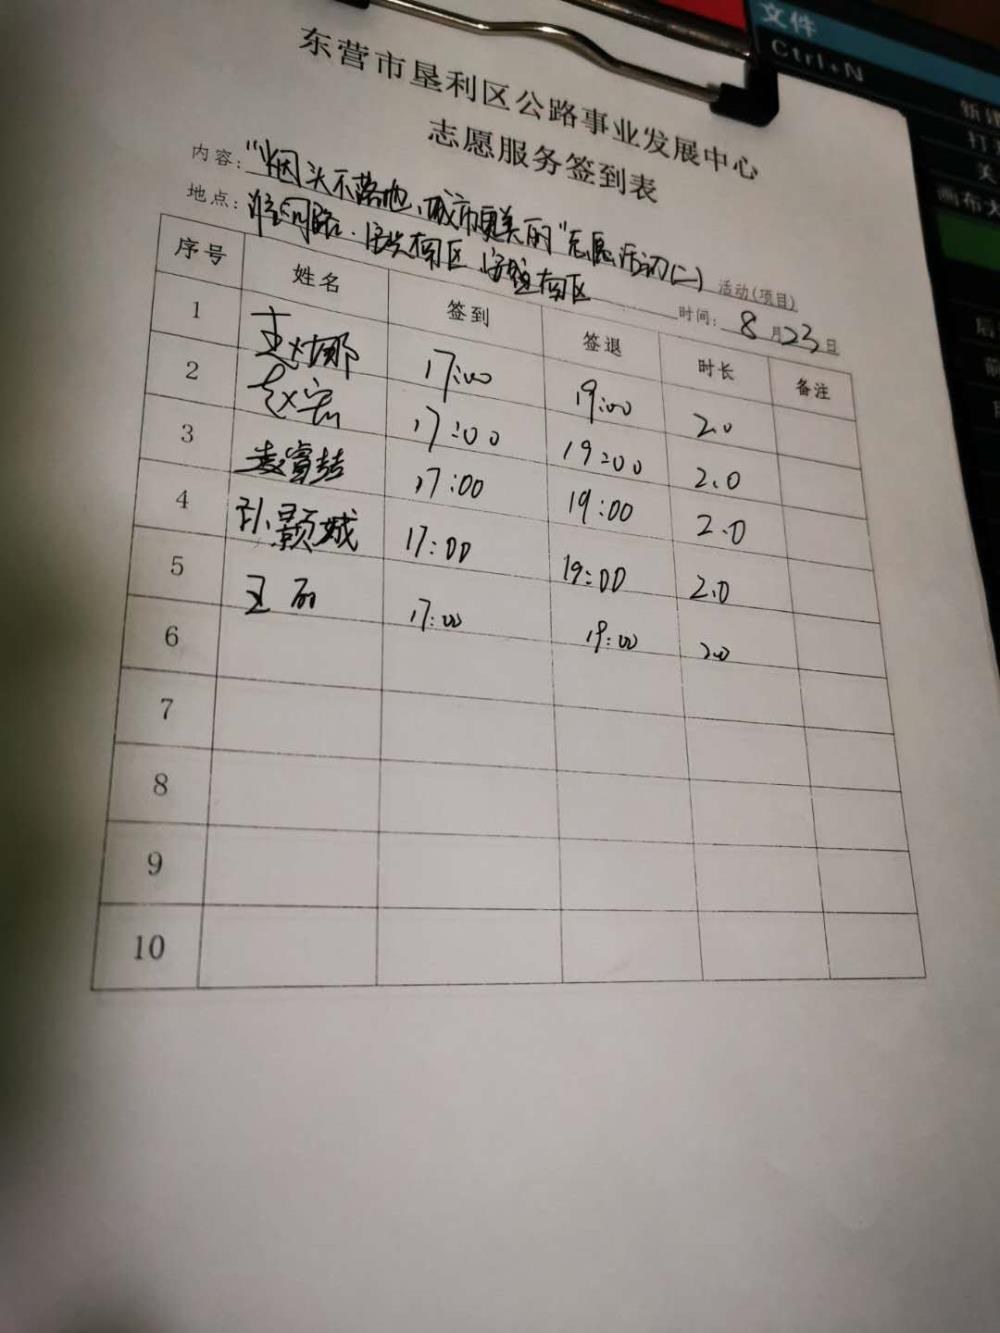 文件
Ctrl+N
新建
打开
关
画布大
东营市垦利区公路事业发展中心
志愿服务签到表
内容："烟头不落地，城市更美丽"志愿活动(二) 活动(项目)
地点： 时间：8月23日
序号 姓名 签到 签退 时长 备注
1 17:00 19:00 2.0
2 赵宏 17:00 19:00 2.0
3 17:00 19:00 2.0
4 孙颢城 17:00 19:00 2.0
5 王丽 17:00 19:00 2.0
6
7
8
9
10